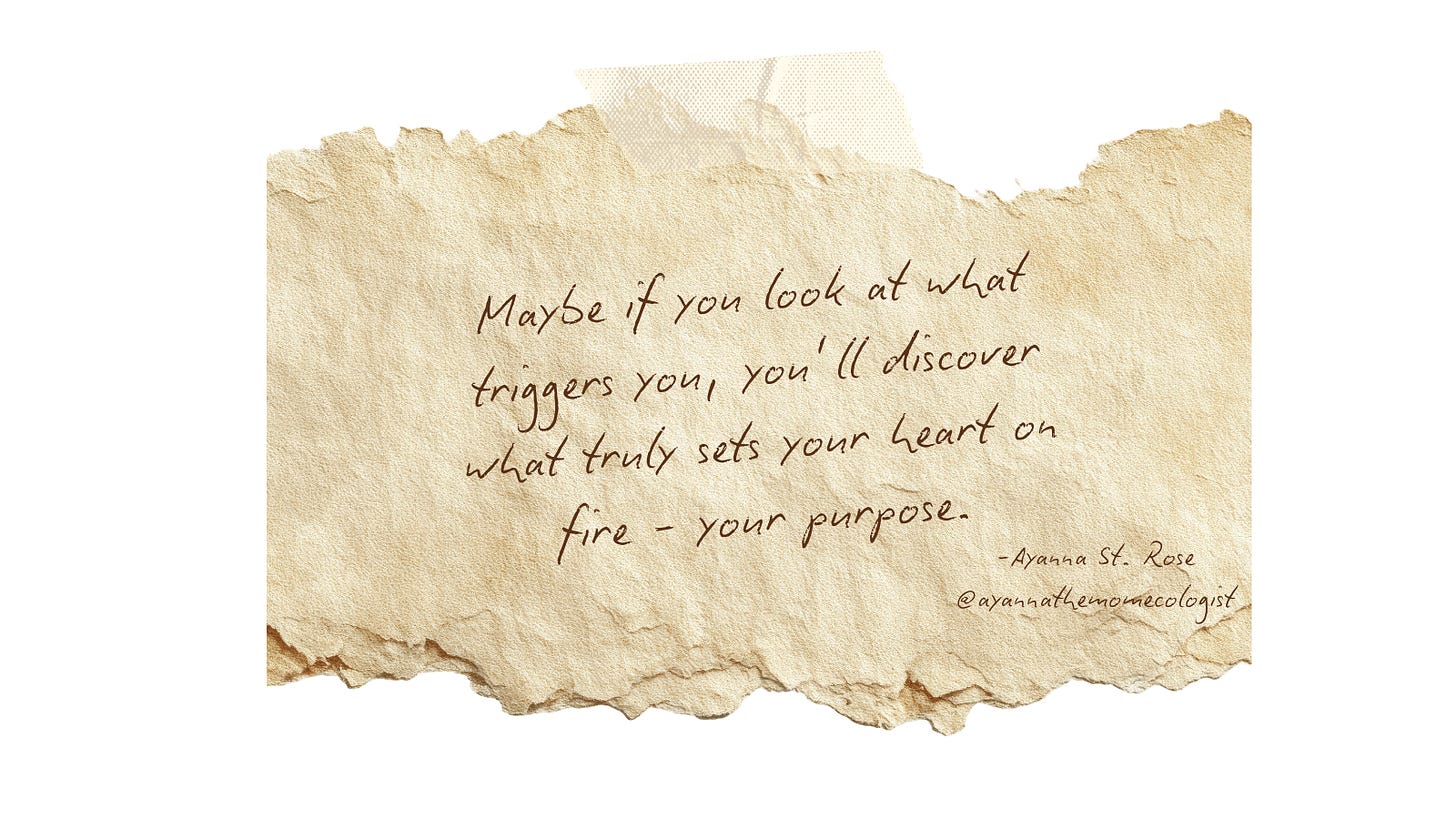 Maybe if you look at what
triggers you, you'll discover
what truly sets your heart on
fire - your purpose.
-Ayanna St. Rose
@ayannathemomecologist